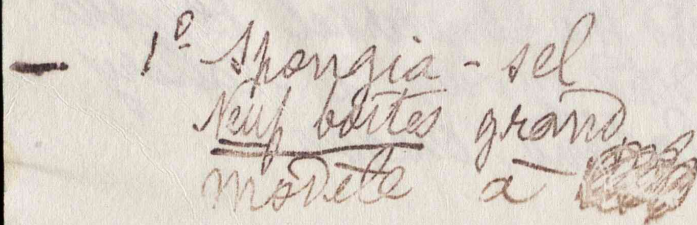 — 1° Spongia - sel
Neuf boîtes grand
modèle à